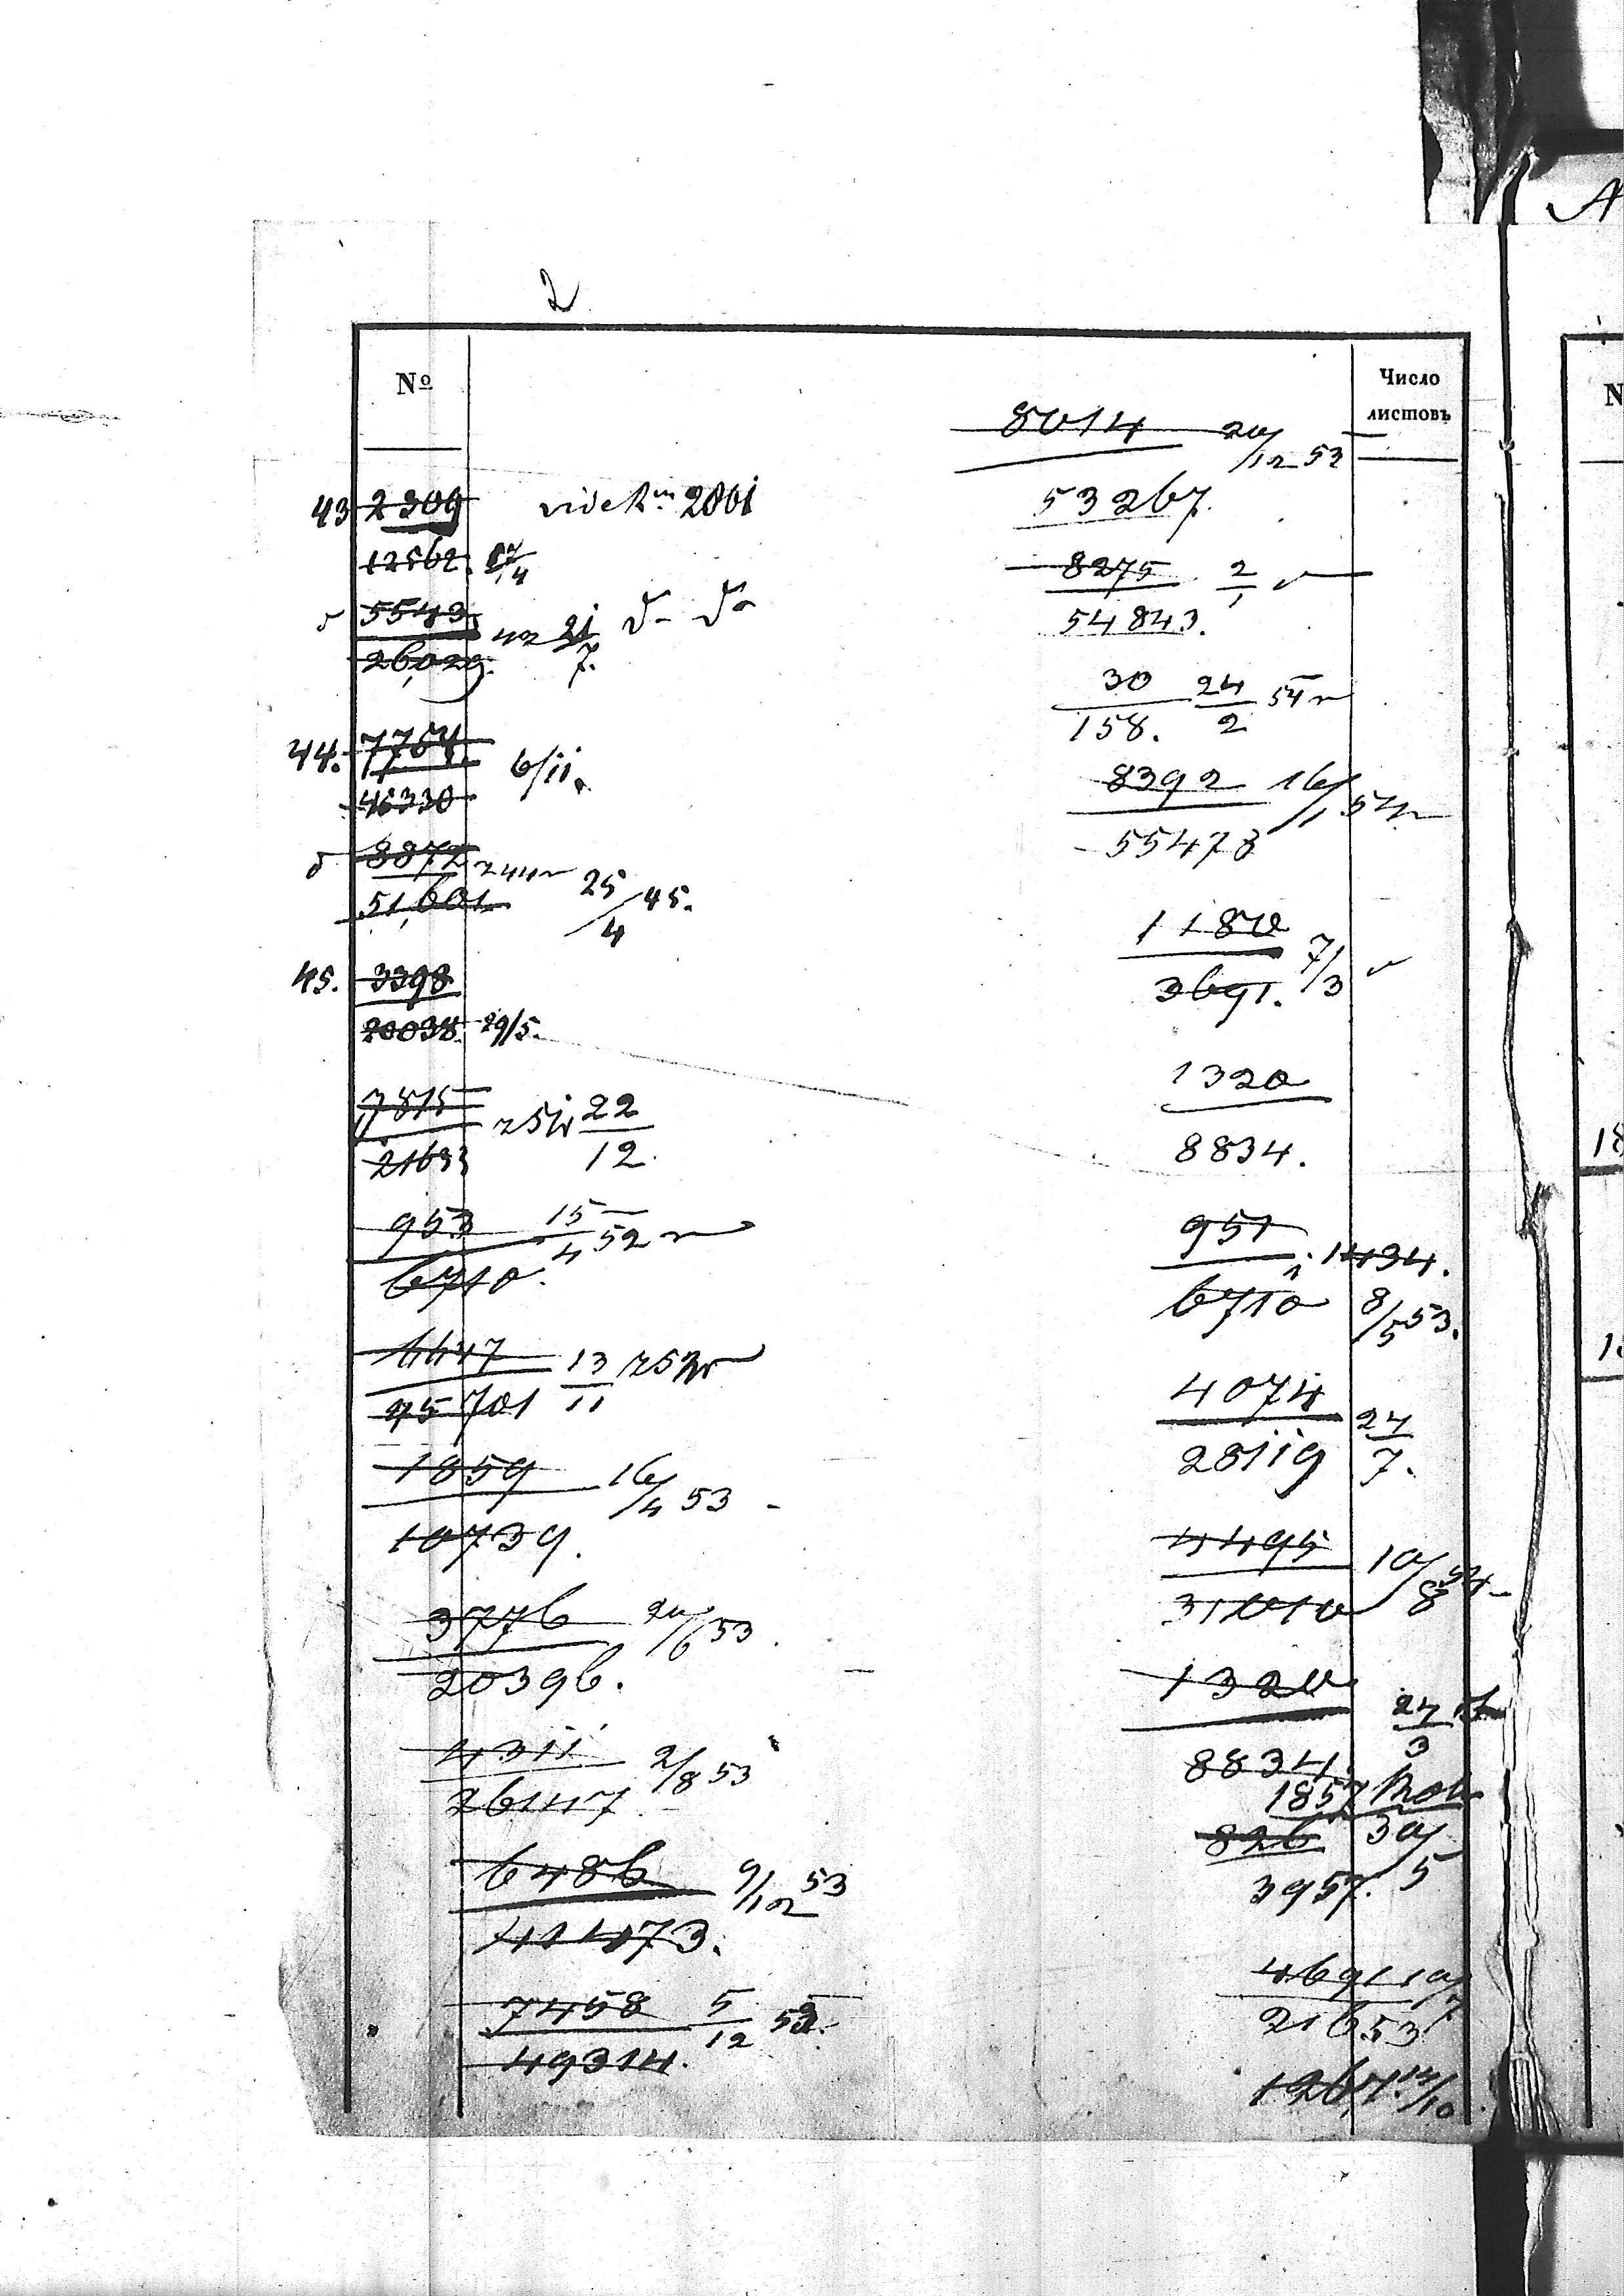 2
№
Число
листовъ
43 2309 vide 2001
12562. 17/4
5543
26,029. 21/7.
44. 7754
46330 6/11.
8872
51,601 25/4 45.
45. 3398
20038. 29/5.
7815 22/12
21633
953 15/4 52
6710.
6647 13/11
45701
1859 16/4 53
10739.
3776 20/6 53.
20396.
4311 2/8 53
26147
6486 9/12 53
41473.
7458 5/12 53.
49314.
8014 20/12 53
53267.
8275 2/1
54843.
30 24/2 54
158.
8392 16/1 54
55478
1180 7/3
3691.
1320
8834.
951 1434.
6710 8/5 53.
4074 24/7.
28119
4495 10/8 54
31010
1320 24/3
8834.
1857
826 30/5
3957.
4691 10/7
21653